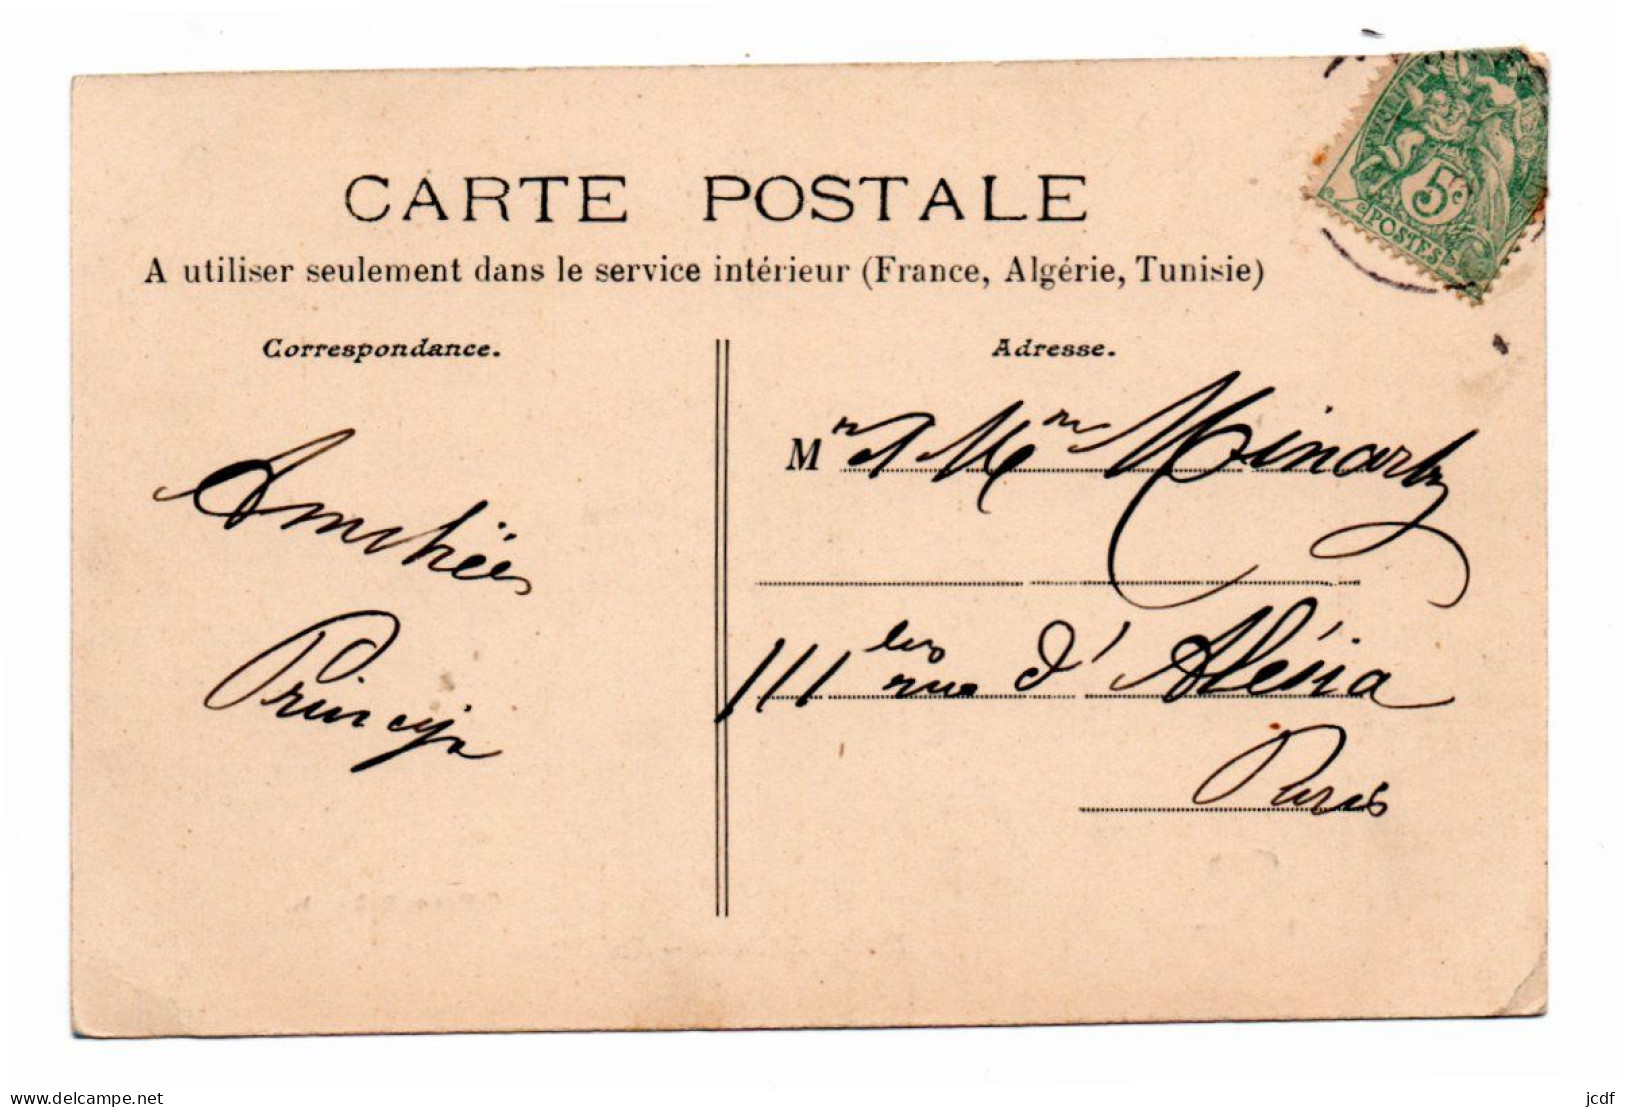 CARTE POSTALE
A utiliser seulement dans le service intérieur (France, Algérie, Tunisie)
5c
POSTES
Correspondance.
Adresse.
Amitiés
Mr et Mme Minart
111 bis rue d'Alésia
Paris
www.delcampe.net
jcdf